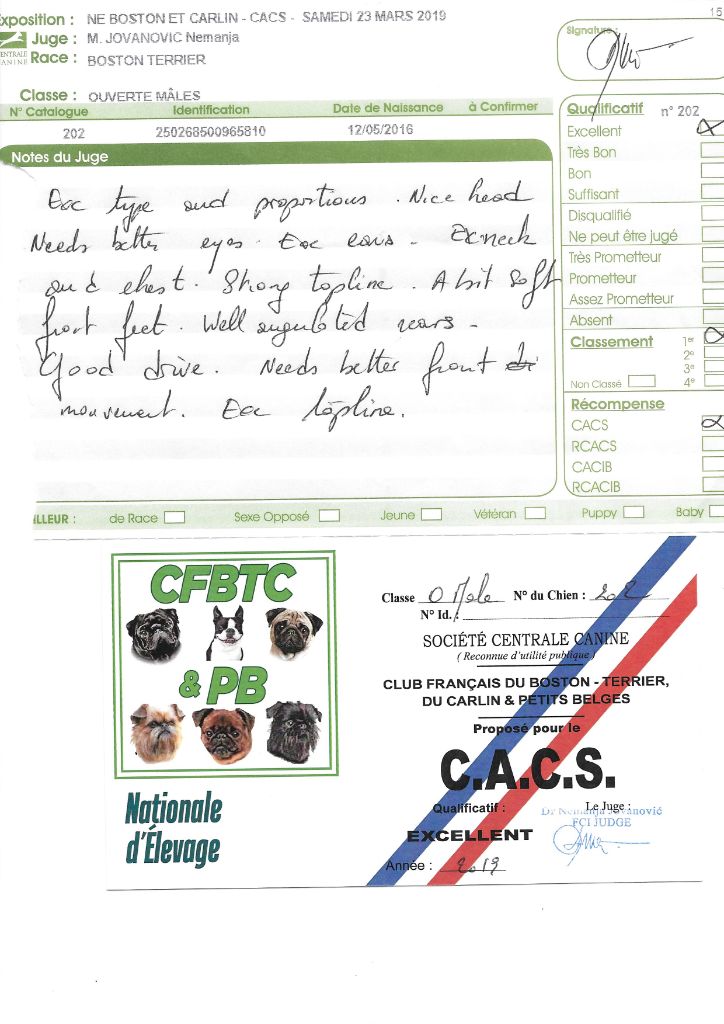 xposition : NE BOSTON ET CARLIN - CACS - SAMEDI 23 MARS 2019
15
Juge : M. JOVANOVIC Nemanja
Signature
ENTRALE
ANINE
Race : BOSTON TERRIER
Classe : OUVERTE MÂLES
N° Catalogue Identification Date de Naissance à Confirmer
202 250268500965810 12/05/2016
Notes du Juge
Exc type and proportions. Nice head
Needs better eyes. Exc ears - Ex neck
and chest. Strong topline. A bit soft
front feet. Well angulated rears -
Good drive. Needs better front
mouvement. Exc topline.
Qualificatif n° 202
Excellent
Très Bon
Bon
Suffisant
Disqualifié
Ne peut être jugé
Très Prometteur
Prometteur
Assez Prometteur
Absent
Classement 1er
2e
3e
Non Classé 4e
Récompense
CACS
RCACS
CACIB
RCACIB
ILLEUR : de Race Sexe Opposé Jeune Vétéran Puppy Baby
CFBTC
& PB
Nationale
d'Élevage
Classe O Male N° du Chien : 202
N° Id. :
SOCIÉTÉ CENTRALE CANINE
( Reconnue d'utilité publique )
CLUB FRANÇAIS DU BOSTON - TERRIER,
DU CARLIN & PETITS BELGES
Proposé pour le
C.A.C.S.
Qualificatif : Le Juge :
Dr Nemanja Jovanović
FCI JUDGE
EXCELLENT
Année : 2019